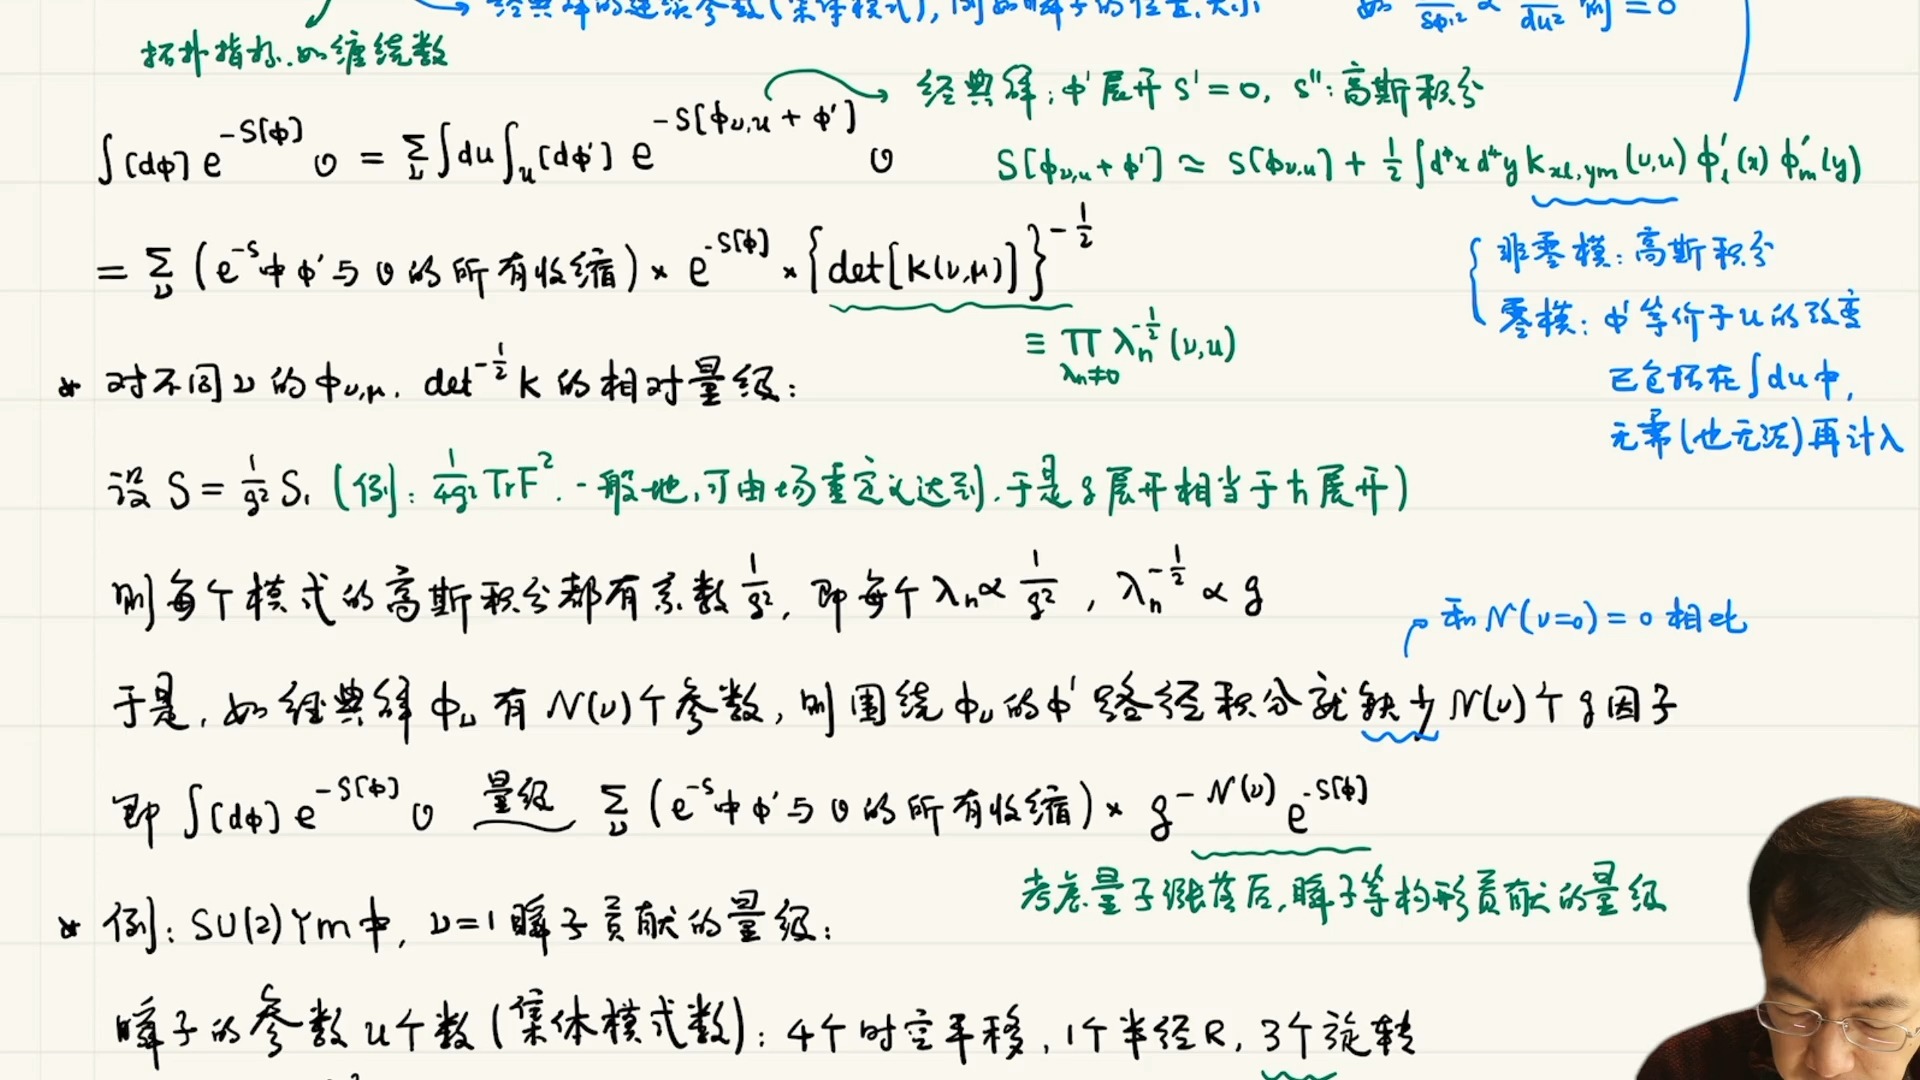 → 经典解的连续参数(集体模式), 例如瞬子的位置、大小
拓扑指标, 如缠绕数
经典解: φ'展开 S'=0, S'': 高斯积分
∫[dφ] e^{-S[φ]} O = Σ_ν ∫du ∫_u [dφ'] e^{-S[φ_{ν,u} + φ']} O
S[φ_{ν,u} + φ'] ≈ S[φ_{ν,u}] + 1/2 ∫d⁴x d⁴y K_{xl,ym}(ν,u) φ'_l(x) φ'_m(y)
= Σ_ν (e^{-S}中φ'与O的所有收缩) × e^{-S[φ]} × {det[K(ν,μ)]}^{-1/2}
非零模: 高斯积分
零模: φ'等价于u的改变
已包括在∫du中,
无需(也无法)再计入
≡ Π_{λn≠0} λ_n^{-1/2}(ν,u)
* 对不同ν的φ_{ν,μ}, det^{-1/2} K 的相对量级:
设 S = 1/g² S₁ (例: 1/4g² TrF². 一般地, 可由场重定义达到. 于是g展开相当于ħ展开)
则每个模式的高斯积分都有系数 1/g², 即每个 λ_n ∝ 1/g², λ_n^{-1/2} ∝ g
和N(ν=0)=0相比
于是, 如经典解φ_ν有N(ν)个参数, 则围绕φ_ν的φ'路径积分就缺少N(ν)个g因子
即 ∫[dφ] e^{-S[φ]} O 量级 Σ_ν (e^{-S}中φ'与O的所有收缩) × g^{-N(ν)} e^{-S[φ]}
考虑量子涨落后, 瞬子等构形贡献的量级
* 例: SU(2) YM中, ν=1瞬子贡献的量级:
瞬子的参数u个数(集体模式数): 4个时空平移, 1个半径R, 3个旋转